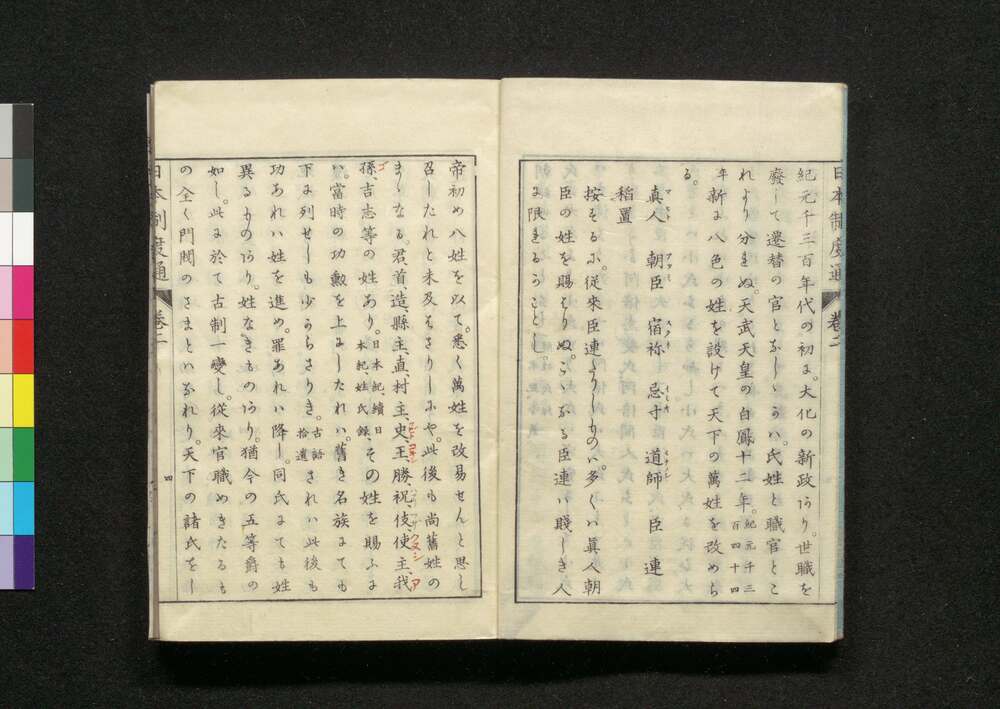 日本制度通 卷二
紀元千三百年代の初に。大化の新政あり。世職を
廢して遷替の官となしゝうハ。氏姓と職官とこ
れより分れぬ。天武天皇の白鳳十二年。紀元千三百四十四
年新に八色の姓を設けて天下の萬姓を改めら
る。
眞人 朝臣 宿祢 忌寸 道師 臣 連
稻置
按するに。從來臣連たりしものハ。多くハ眞人朝
臣の姓を賜はりぬ。こゝなる臣連ハ賤しき人
に限れるうことし。
帝初め八姓を以て。悉く萬姓を改易せんと思し
召したれと未及はさりしにや。此後も尚舊姓の
まゝなる。君、首、造、縣主、直、村主、史、王、勝、祝、伎、使主、我
孫、吉志等の姓あり。日本紀、續日本紀、姓氏錄、その姓を賜ふに
ハ。當時の功勲を上にしたれハ。舊き名族にても
下に列せしも少うらさりき。古語拾遺されハ此後も
功あれハ姓を進め。罪あれハ降し。同氏にても姓
異るものあり。姓なきものあり。猶今の五等爵の
如し。此に於て古制一變し。從來官職めきたるも
の全く門閥のさまとハなれり。天下の諸氏をし
日本制度通 卷二
四